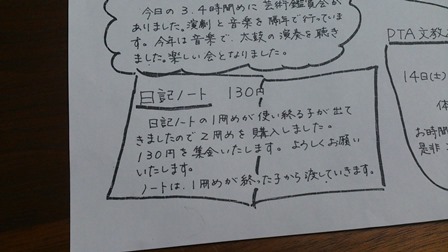 今日の3、4時間めに芸術鑑賞会が
ありました。演劇と音楽を隔年で行っていま
す。今年は音楽で、太鼓の演奏を聴き
ました。楽しい会となりました。
日記ノート 130円
日記ノートの1冊めが使い終る子が出て
きましたので2冊めを購入しました。
130円を集金いたします。よろしくお願い
いたします。
ノートは、1冊めが終った子から渡していきます。
PTA文教
14日(土)
体
お時間
是非